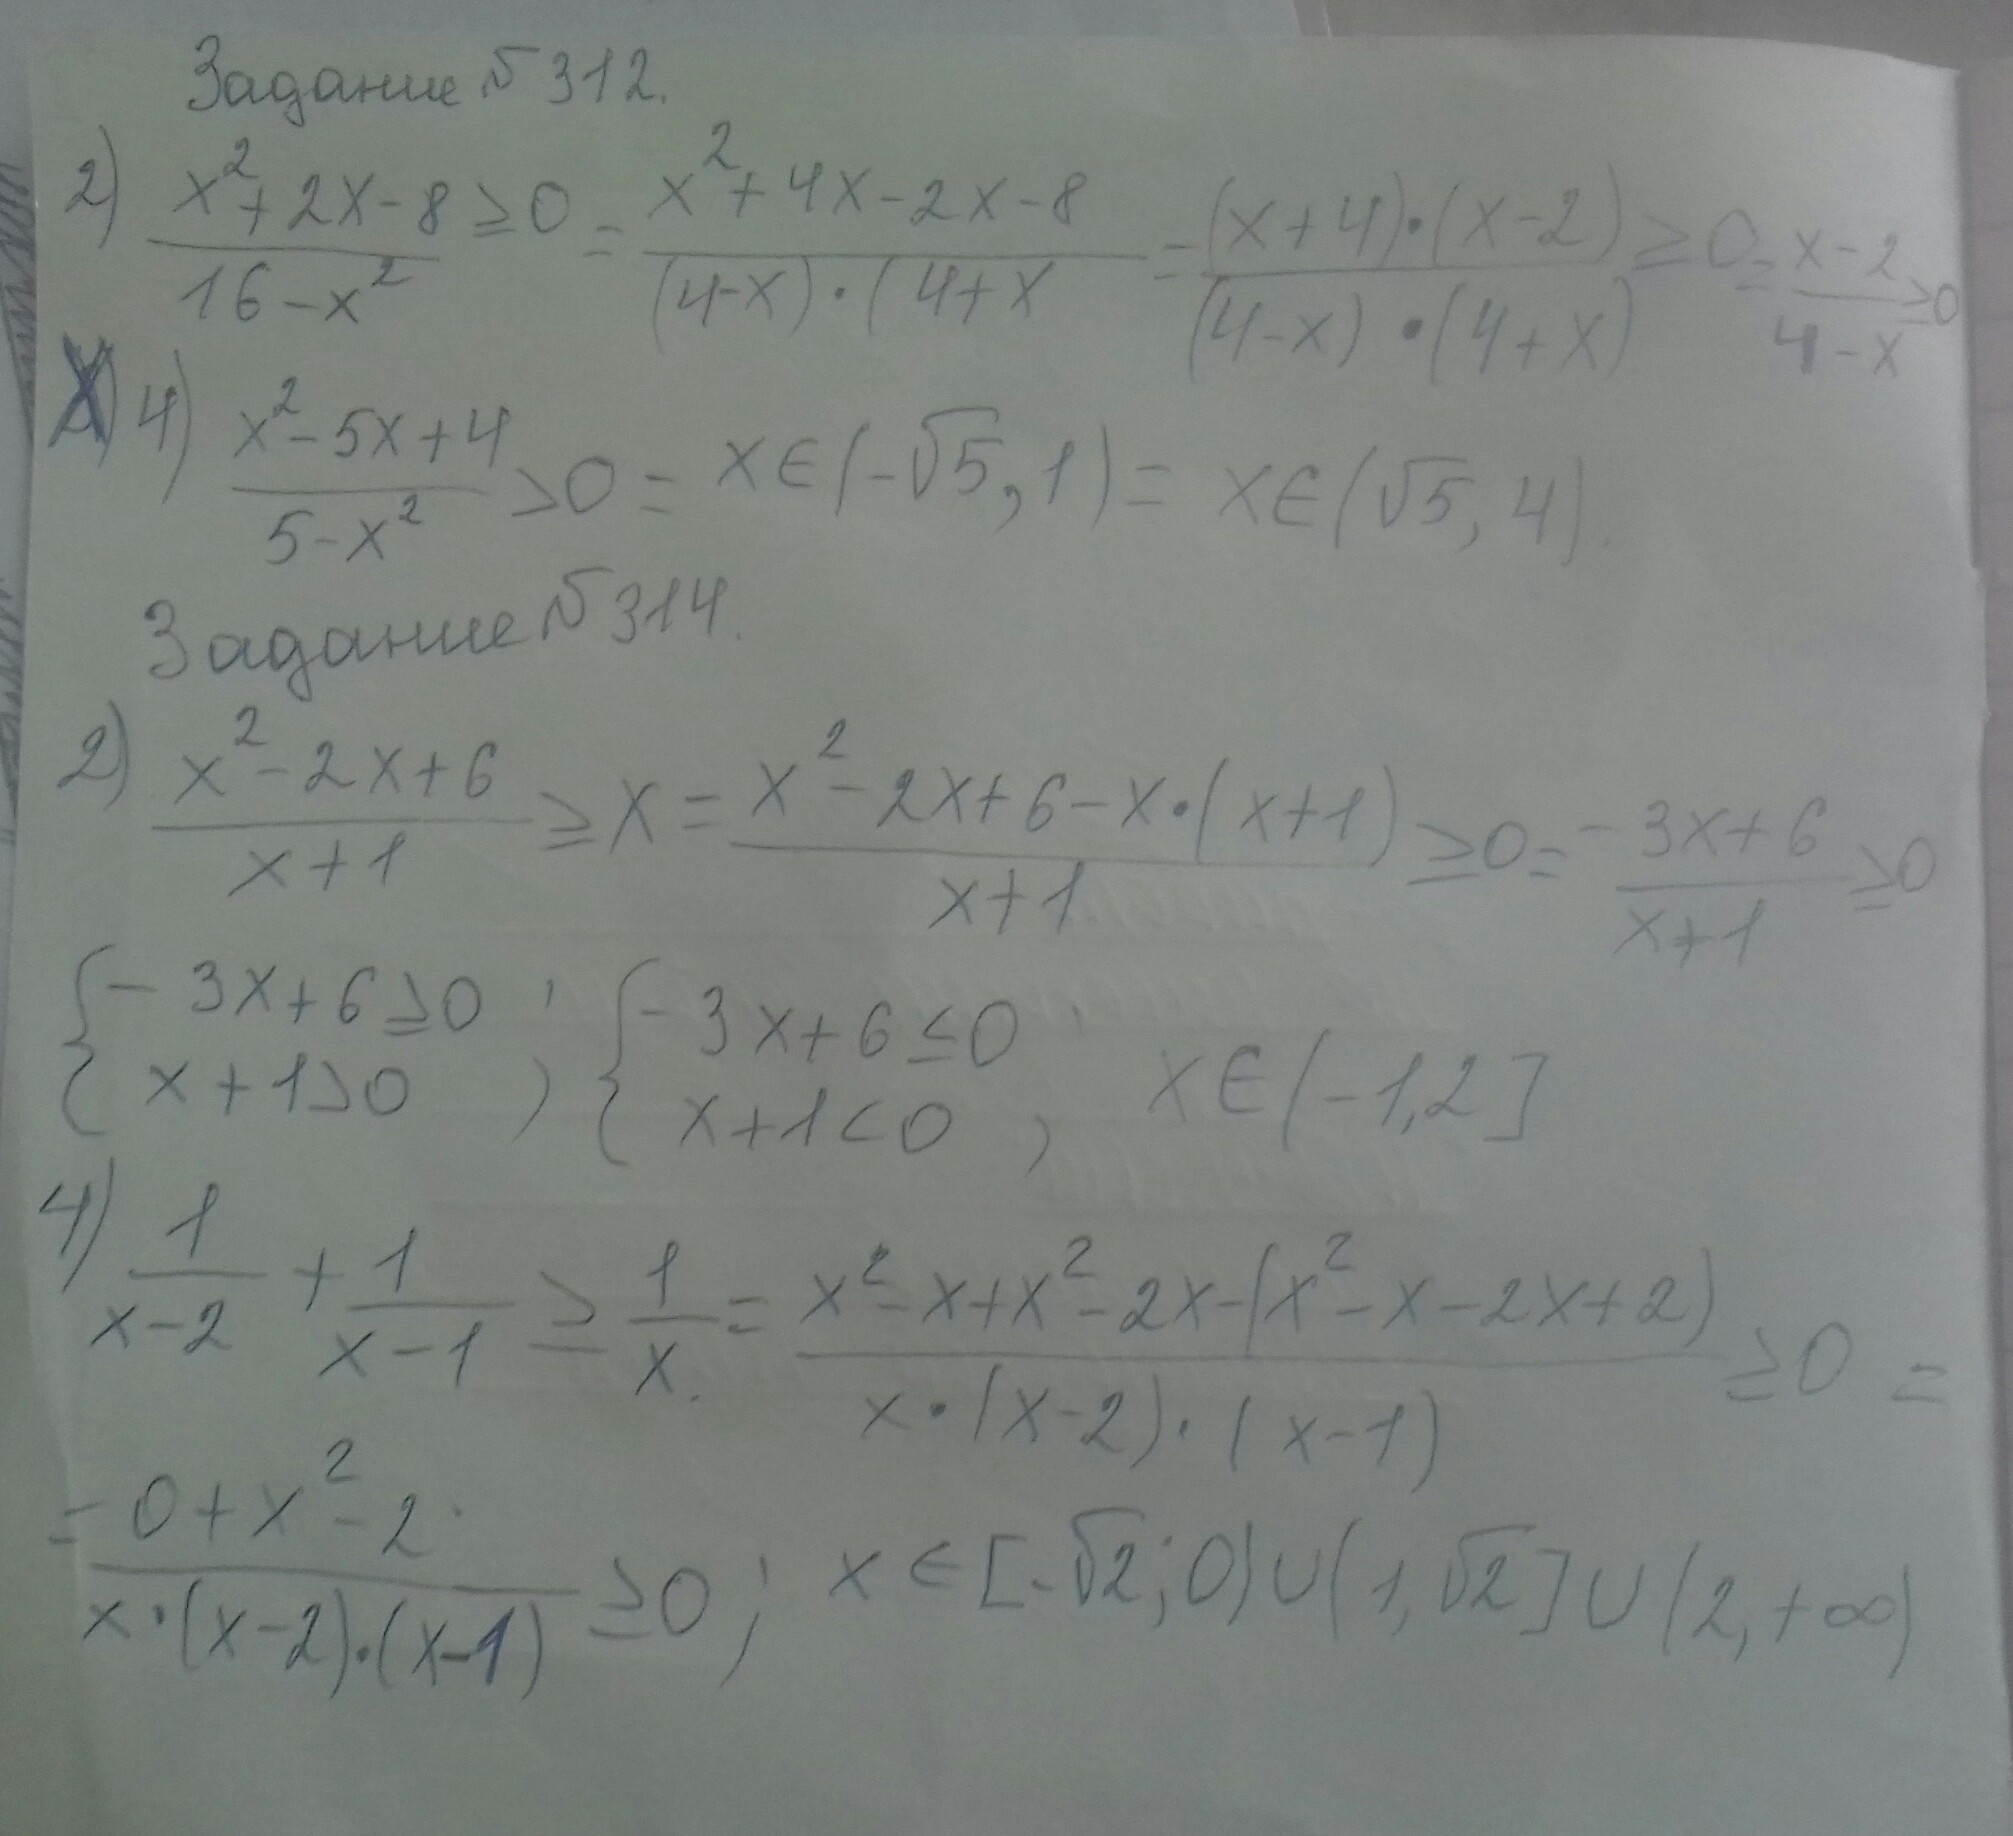 Задание № 312.
2) (x² + 2x - 8)/(16 - x²) ≥ 0 = (x² + 4x - 2x - 8)/((4-x)·(4+x) = ((x+4)·(x-2))/((4-x)·(4+x)) ≥ 0 = (x-2)/(4-x) ≥ 0
4) (x² - 5x + 4)/(5 - x²) > 0 = x ∈ (-√5, 1) = x ∈ (√5, 4).
Задание № 314.
2) (x² - 2x + 6)/(x + 1) ≥ x = (x² - 2x + 6 - x·(x+1))/(x+1) ≥ 0 = (-3x+6)/(x+1) ≥ 0
{ -3x+6 ≥ 0 ; { -3x+6 ≤ 0 ; x ∈ (-1, 2]
x + 1 > 0 x + 1 < 0
4) 1/(x-2) + 1/(x-1) ≥ 1/x. = (x² - x + x² - 2x - (x² - x - 2x + 2))/(x·(x-2)·(x-1)) ≥ 0 =
= (0 + x² - 2)/(x·(x-2)·(x-1)) ≥ 0 ; x ∈ [-√2; 0) ∪ (1, √2] ∪ (2, +∞)